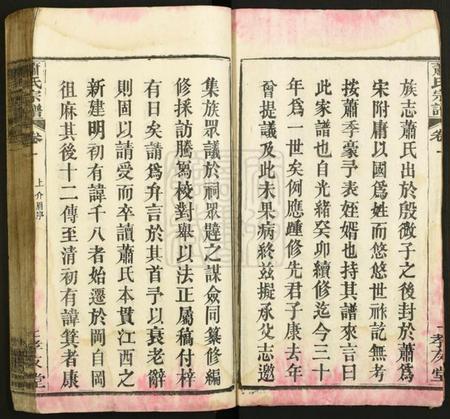 蕭氏宗譜
卷一
孝友堂
族志蕭氏出於殷微子之後封於蕭爲
宋附庸以國爲姓而悠悠世祚記無考
按蕭季豪予表姪婿也持其譜來言曰
此家譜也自光緒癸卯續修迄今三十
年爲一世矣例應踵修先君子康去年
曾提議及此未果病終茲擬承父志邀
集族眾議於祠眾韙之謀僉同纂修編
修採訪騰寫校對舉以法正屬稿付梓
有日矣請爲弁言於其首予以衰老辭
則固以請愛而卒讀蕭氏本貫江西之
新建明初有諱千八者始遷於岡自岡
徂麻其後十二傳至清初有諱箕者康
蕭氏宗譜
卷一
上介眉序
孝友堂